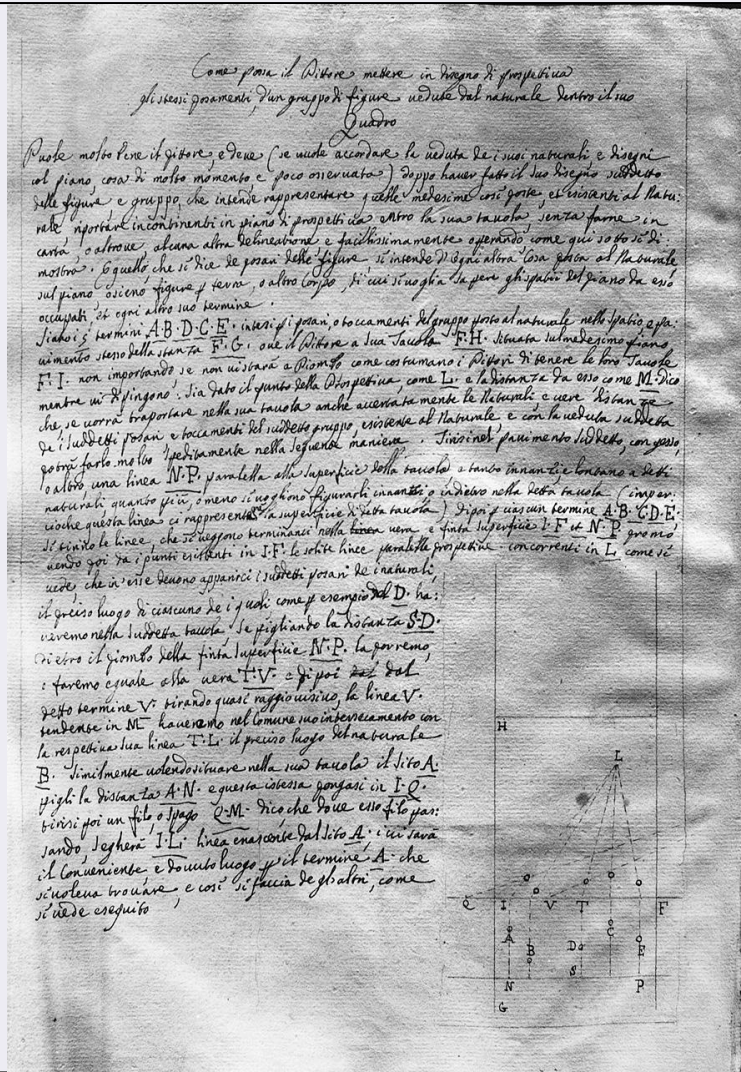 Come possa il Pittore mettere in disegno di prospettiva
gli stessi posamenti, d'un gruppo di figure vedute dal naturale dentro il suo
Quadro
Puole molto bene il pittore e deve (se vuole accordare la veduta de i suoi naturali, e disegni
col piano, cosa di molto momento e poco osservata) doppo haver fatto il suo disegno suddetto
delle figure e gruppo, che intende rappresentare quelle medesime così poste, et esistenti al Natu:
rale riportare incontinenti in piano di prospettiva entro la sua tavola, senza farne in
carta, o altrove alcuna altra delineatione e facilissimamente operando, come qui sotto si di:
mostra. E quello, che si dice de posari delle figure si intende d'ogni altra Cosa posta al Naturale
sul piano o sieno figure p terra, o altro Corpo, di cui si voglia sapere gli spatii del piano da esso
occupati et ogni altro suo termine.
Siano i 5 termini A. B. D. C. E. intesi p i posari, o toccamenti del gruppo posto al naturale nello spatio e pa:
vimento steso della stanza F. G. ove il Pittore a sua Tavola F. H. situata sul medesimo piano
F. I. non importando se non vi stara a Piombo come costumano i Pittori di tenere le loro Tavole
mentre vi dipingono. Sia dato il punto della Prospettiva, come L. e la distanza da esso come M. dico
che, se vorrà traportare nella sua tavola anche accertatamente le Naturali e vere distanze
de i suddetti posari e toccamenti del suddetto gruppo, esistente al Naturale e con la veduta suddetta
potrà farlo molto speditamente nella seguente maniera. Tirisi nel pavimento suddetto, con gesso,
o altro una linea N. P. paralella alla superficie della tavola e tanto innanzi e lontano a detti
naturali quanto più, o meno si vogliono figurarli innanti o indietro nella detta tavola (imper:
cioche questa linea ci rappresenta la superficie di detta tavola) di poi p ciascun termine A. B. C. D. E.
si tirino le linee, che si veggono terminanti nella linea vera e finta superficie I. F. et N. P. promo
vendo poi da i punti esistenti in I. F. le solite linee paralelle prospettive concorrenti in L come si
vede, che in esse devono apparirci i suddetti posari de i naturali,
il preciso luogo di ciascuno de i quali come p esempio del D. ha:
veremo nella suddetta tavola, se pigliando la distanza S. D.
dietro il piombo della finta superficie N. P. la porremo,
e faremo eguale alla vera T. V. e di poi dal dal
detto termine V. tirando quasi raggio visivo, la linea V.
tendente in M haveremo nel Comune suo intersecamento con
la respettiva sua linea T. L. il preciso luogo del naturale
B. Similmente volendo situare nella sua tavola il sito A.
pigli la distanza A. N. e questa istessa pongasi in I. Q.
tirisi poi un filo, o spago Q. M. dico che dove esso filo pas:
sando, segherà I. L. linea enascente dal sito A. ivi sarà
il conveniente e dovuto luogo p il termine A. che
si voleva trovare, e così si faccia de gli altri, come
si vede eseguito
H
L
Q I V T F
A B D C E
S
N P
G